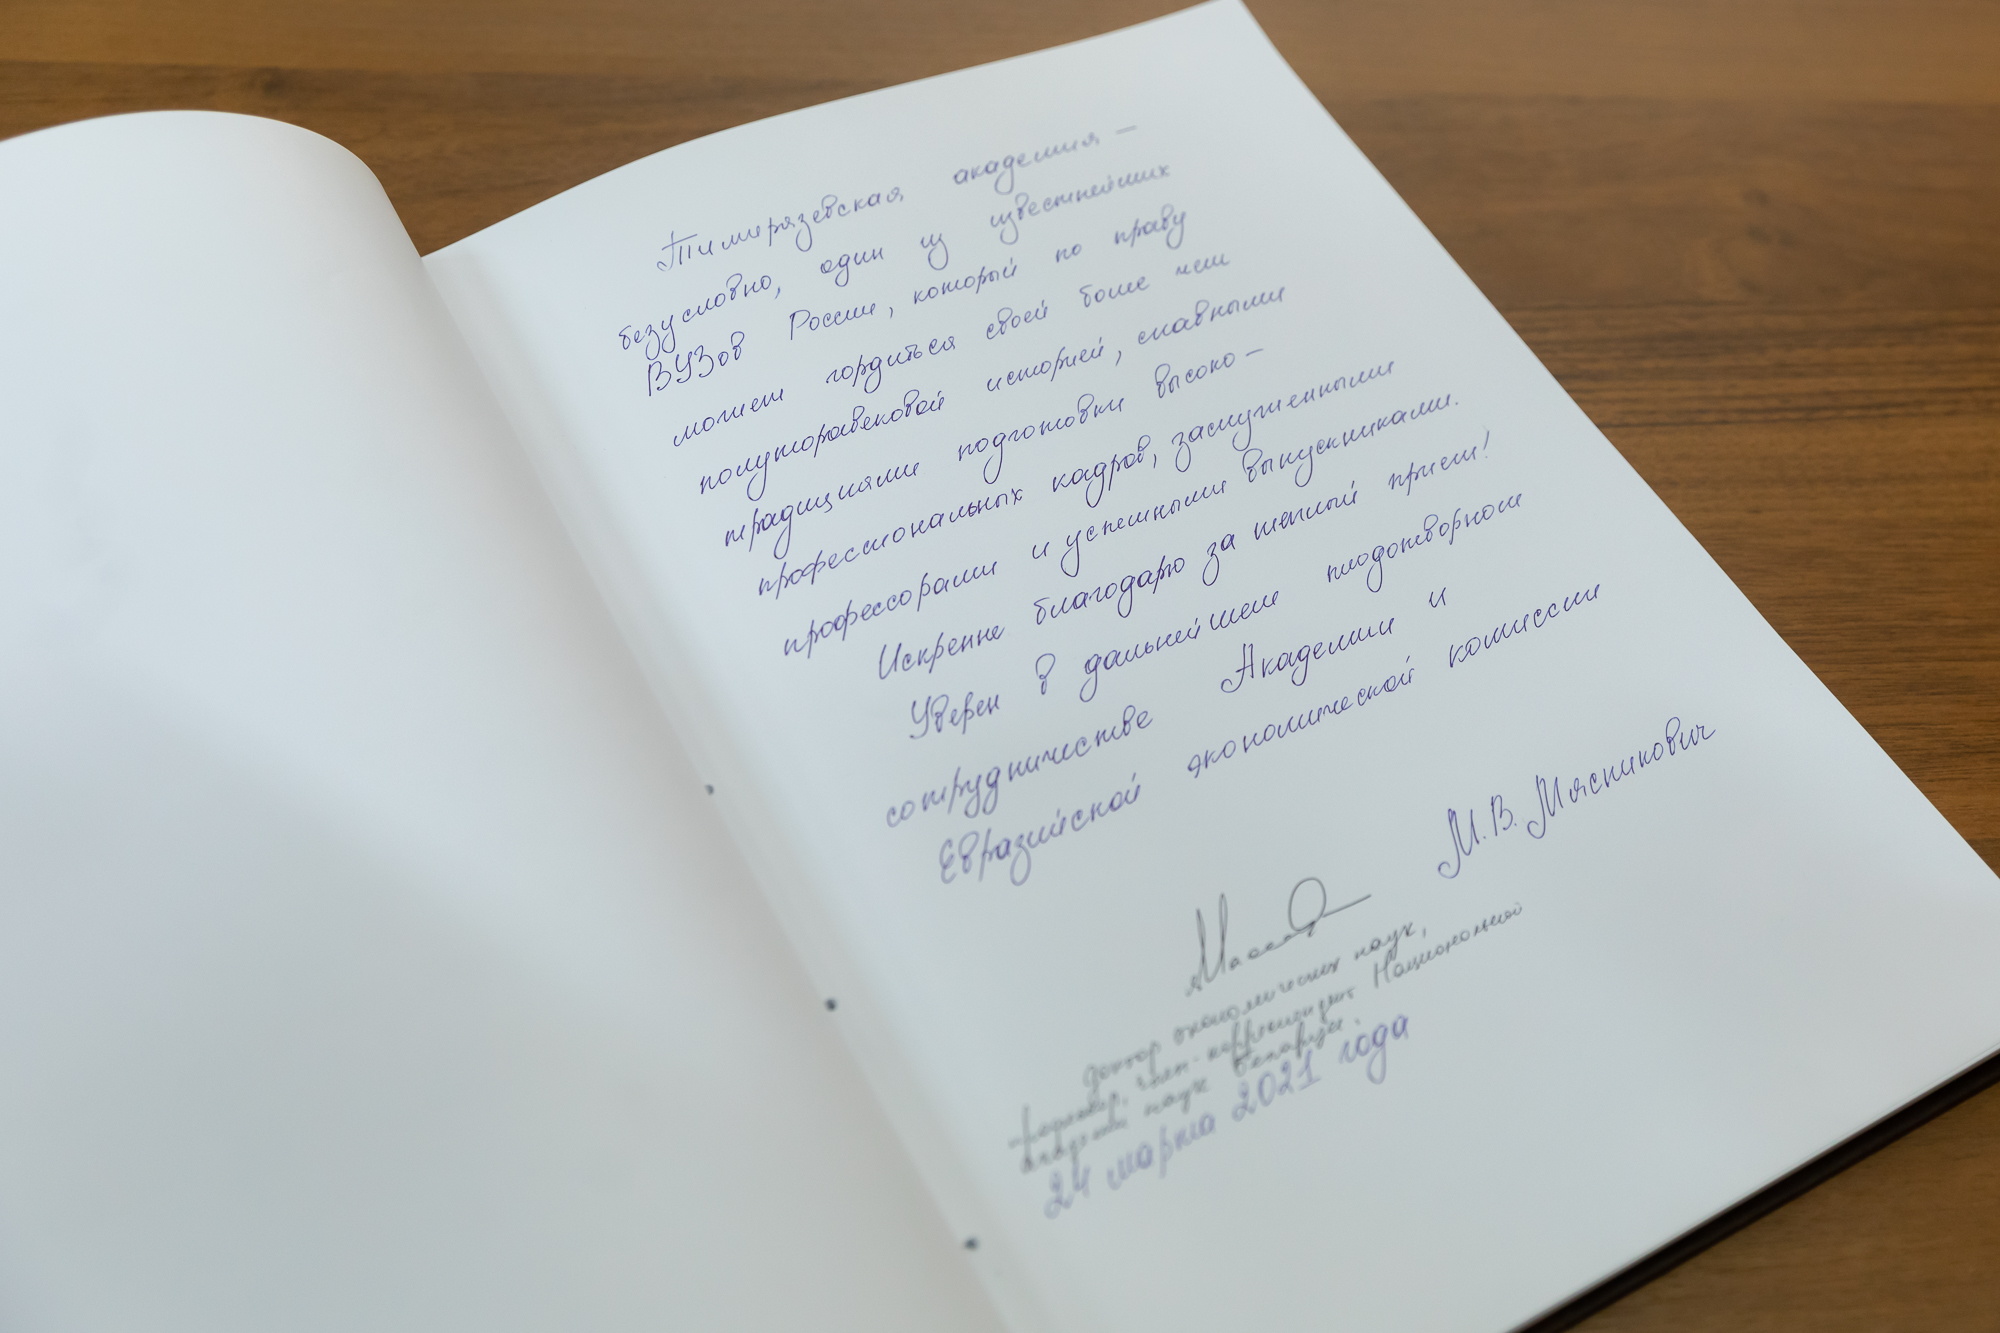 Тимирязевская академия –
безусловно, один из известнейших
ВУЗов России, который по праву
может гордиться своей более чем
полуторавековой историей, славными
традициями подготовки высоко-
профессиональных кадров, заслуженными
профессорами и успешными выпускниками.
Искренне благодарю за теплый прием!
Уверен в дальнейшем плодотворном
сотрудничестве Академии и
Евразийской экономической комиссии
М.В. Мясникович
доктор экономических наук,
профессор, член-корреспондент Национальной
академии наук Беларуси.
24 марта 2021 года